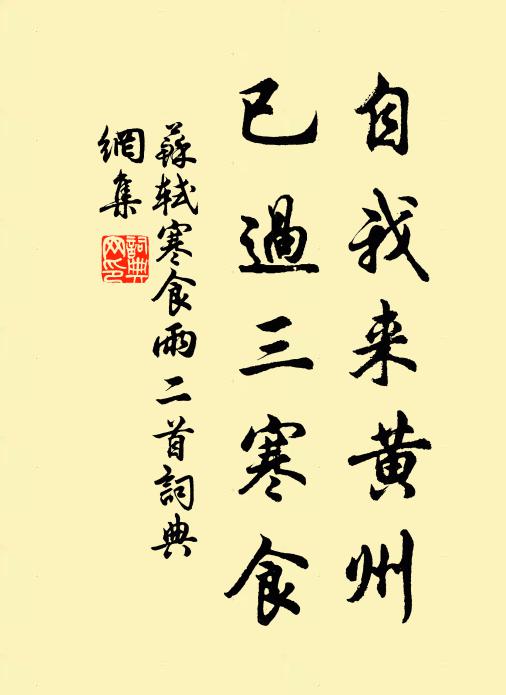 自我来黄州
已過三寒食
蘇軾寒食雨二首詞典
網集
詞典网印